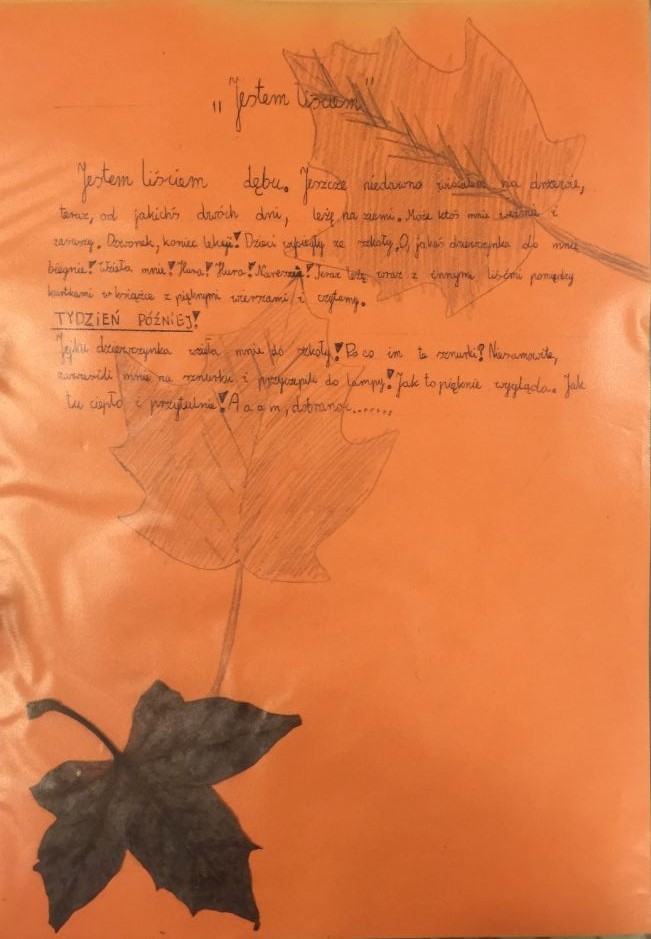 „Jestem liściem”
Jestem liściem dębu. Jeszcze niedawno wisiałem na drzewie,
teraz, od jakichś dwóch dni, leżę na ziemi. Może ktoś mnie weźmie i
zasuszy. Dzwonek, koniec lekcji! Dzieci wybiegły ze szkoły. O, jakaś dziewczynka do mnie
biegnie! Wzięła mnie! Hura! Hura! Nareszcie! Teraz leżę wraz z innymi liśćmi pomiędzy
kartkami w książce z pięknymi wierszami i czytamy.
TYDZIEŃ PÓŹNIEJ!
Jejku dziewczynka wzięła mnie do szkoły! Po co im te sznurki? Niesamowite,
zawiesili mnie na sznurku i przyczepili do lampy! Jak to pięknie wygląda.. Jak
tu ciepło i przytulnie! A a a m, dobranoc.......